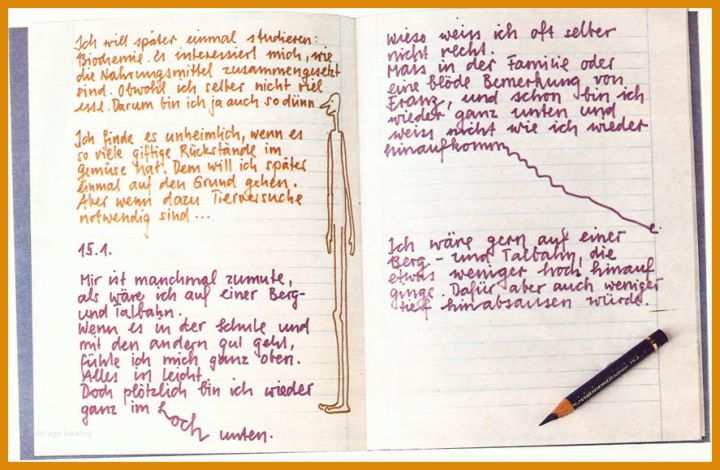 Ich will später einmal studieren:
Biochemie. Es interessiert mich, wie
die Nahrungsmittel zusammengesetzt
sind. Obwohl ich selber nicht viel
esse. Darum bin ich ja auch so dünn
Ich finde es unheimlich, wenn es
so viele giftige Rückstände im
Gemüse hat. Dem will ich später
einmal auf den Grund gehen.
Aber wenn dazu Tierversuche
notwendig sind ...
15.1.
Mir ist manchmal zumute,
als wäre ich auf einer Berg-
und Talbahn.
Wenn es in der Schule und
mit den andern gut geht,
fühle ich mich ganz oben.
Alles ist leicht.
Doch plötzlich bin ich wieder
ganz im Loch
unten.
Wieso weiss ich oft selber
nicht recht.
Mais in der Familie oder
eine blöde Bemerkung von
Franz, und schon bin ich
wieder ganz unten und
weiss nicht wie ich wieder
hinaufkomm
e.
Ich wäre gern auf einer
Berg- und Talbahn, die
etwas weniger hoch hinauf
ginge. Dafür aber auch weniger
tief hinabsausen würde.